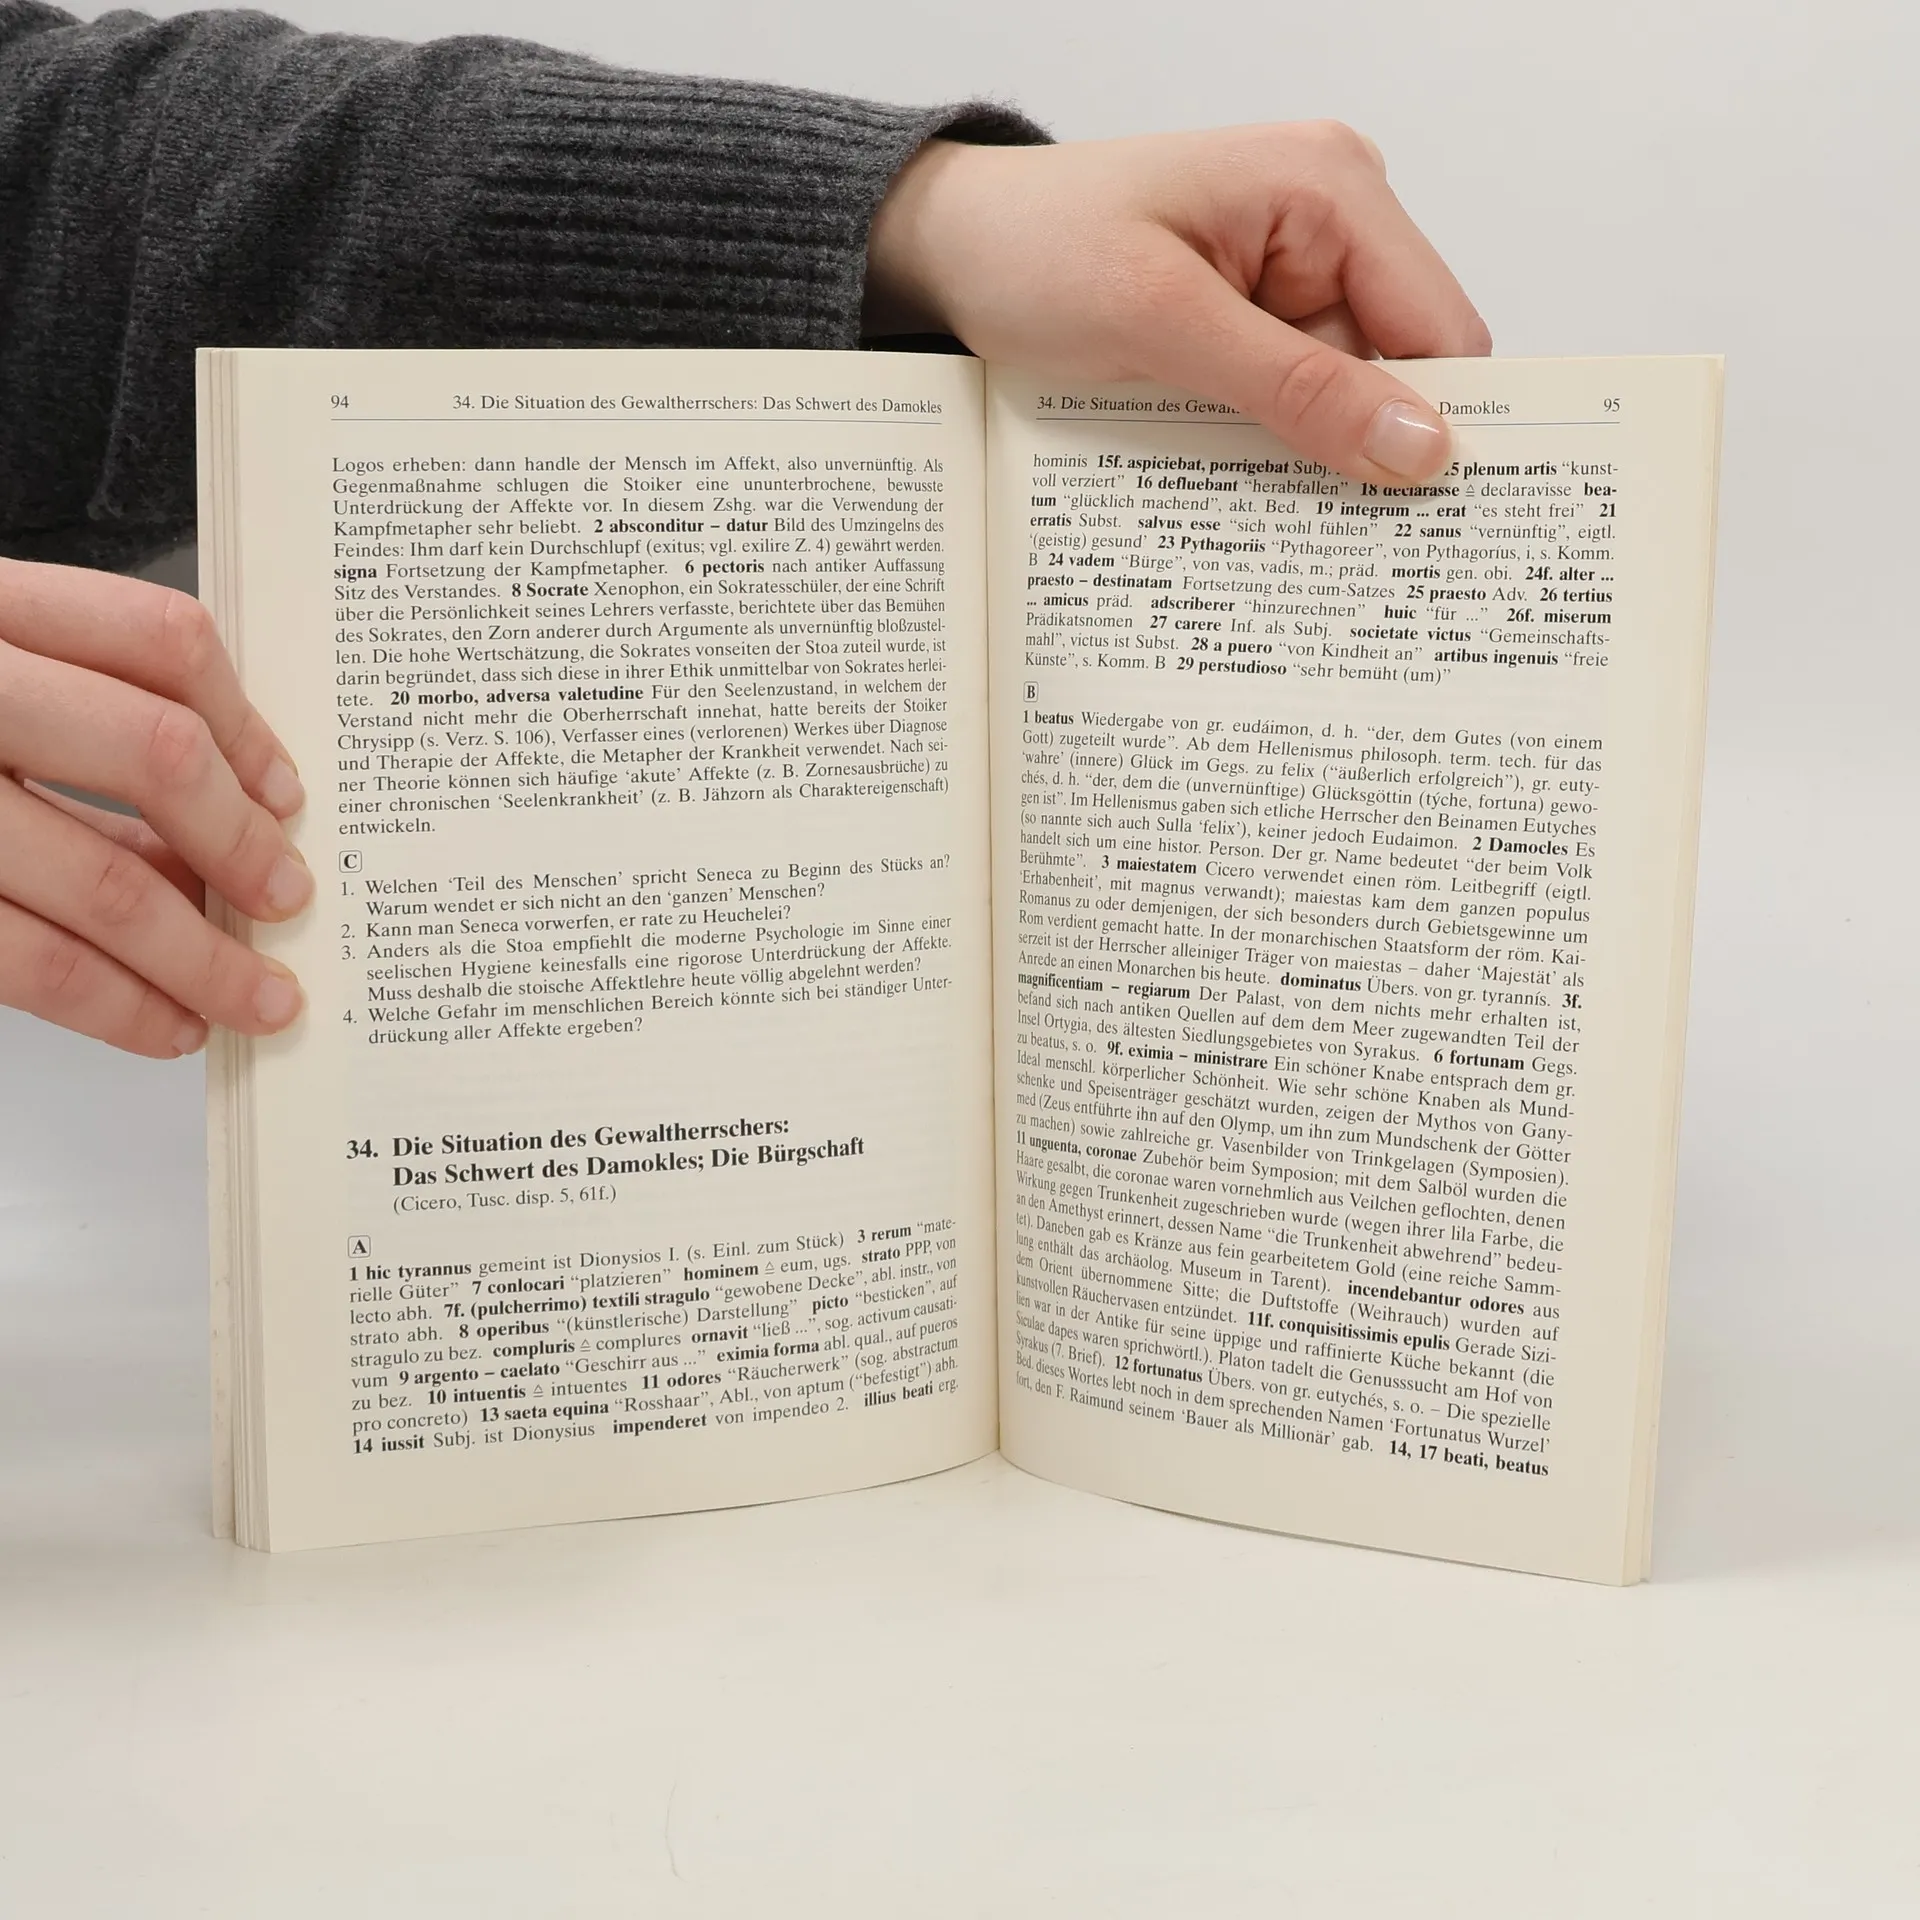 94 34. Die Situation des Gewaltherrschers: Das Schwert des Damokles
Logos erheben: dann handle der Mensch im Affekt, also unvernünftig. Als
Gegenmaßnahme schlugen die Stoiker eine ununterbrochene, bewusste
Unterdrückung der Affekte vor. In diesem Zshg. war die Verwendung der
Kampfmetapher sehr beliebt. 2 absconditur – datur Bild des Umzingelns des
Feindes: Ihm darf kein Durchschlupf (exitus; vgl. exilire Z. 4) gewährt werden.
signa Fortsetzung der Kampfmetapher. 6 pectoris nach antiker Auffassung
Sitz des Verstandes. 8 Socrate Xenophon, ein Sokratesschüler, der eine Schrift
über die Persönlichkeit seines Lehrers verfasste, berichtete über das Bemühen
des Sokrates, den Zorn anderer durch Argumente als unvernünftig bloßzustel-
len. Die hohe Wertschätzung, die Sokrates vonseiten der Stoa zuteil wurde, ist
darin begründet, dass sich diese in ihrer Ethik unmittelbar von Sokrates herlei-
tete. 20 morbo, adversa valetudine Für den Seelenzustand, in welchem der
Verstand nicht mehr die Oberherrschaft innehat, hatte bereits der Stoiker
Chrysipp (s. Verz. S. 106), Verfasser eines (verlorenen) Werkes über Diagnose
und Therapie der Affekte, die Metapher der Krankheit verwendet. Nach sei-
ner Theorie können sich häufige ‘akute’ Affekte (z. B. Zornesausbrüche) zu
einer chronischen ‘Seelenkrankheit’ (z. B. Jähzorn als Charaktereigenschaft)
entwickeln.
C
1. Welchen ‘Teil des Menschen’ spricht Seneca zu Beginn des Stücks an?
Warum wendet er sich nicht an den ‘ganzen’ Menschen?
2. Kann man Seneca vorwerfen, er rate zu Heuchelei?
3. Anders als die Stoa empfiehlt die moderne Psychologie im Sinne einer
seelischen Hygiene keinesfalls eine rigorose Unterdrückung der Affekte.
Muss deshalb die stoische Affektlehre heute völlig abgelehnt werden?
4. Welche Gefahr im menschlichen Bereich könnte sich bei ständiger Unter-
drückung aller Affekte ergeben?
34. Die Situation des Gewaltherrschers:
Das Schwert des Damokles; Die Bürgschaft
(Cicero, Tusc. disp. 5, 61f.)
A
1 hic tyrannus gemeint ist Dionysios I. (s. Einl. zum Stück) 3 rerum “mate-
rielle Güter” 7 conlocari “platzieren” hominem ≙ eum, ugs. strato PPP, von
lecto abh. 7f. (pulcherrimo) textili stragulo “gewobene Decke”, abl. instr., von
strato abh. 8 operibus “(künstlerische) Darstellung” picto “besticken”, auf
stragulo zu bez. compluris ≙ complures ornavit “ließ ...”, sog. activum causati-
vum 9 argento – caelato “Geschirr aus ...” eximia forma abl. qual., auf pueros
zu bez. 10 intuentis ≙ intuentes 11 odores “Räucherwerk” (sog. abstractum
pro concreto) 13 saeta equina “Rosshaar”, Abl., von aptum (“befestigt”) abh.
14 iussit Subj. ist Dionysius impenderet von impendeo 2. illius beati erg.
34. Die Situation des Damokles 95
hominis 15f. aspiciebat, porrigebat Subj. plenum artis “kunst-
voll verziert” 16 defluebant “herabfallen” 18 declarasse ≙ declaravisse bea-
tum “glücklich machend”, akt. Bed. 19 integrum ... erat “es steht frei” 21
erratis Subst. salvus esse “sich wohl fühlen” 22 sanus “vernünftig”, eigtl.
‘(geistig) gesund’ 23 Pythagoriis “Pythagoreer”, von Pythagoríus, i, s. Komm.
B 24 vadem “Bürge”, von vas, vadis, m.; präd. mortis gen. obi. 24f. alter ...
praesto – destinatam Fortsetzung des cum-Satzes 25 praesto Adv. 26 tertius
... amicus präd. adscriberer “hinzurechnen” huic “für ...” 26f. miserum
Prädikatsnomen 27 carere Inf. als Subj. societate victus “Gemeinschafts-
mahl”, victus ist Subst. 28 a puero “von Kindheit an” artibus ingenuis “freie
Künste”, s. Komm. B 29 perstudioso “sehr bemüht (um)”
B
1 beatus Wiedergabe von gr. eudáimon, d. h. “der, dem Gutes (von einem
Gott) zugeteilt wurde”. Ab dem Hellenismus philosoph. term. tech. für das
‘wahre’ (innere) Glück im Gegs. zu felix (“äußerlich erfolgreich”), gr. euty-
chés, d. h. “der, dem die (unvernünftige) Glücksgöttin (týche, fortuna) gewo-
gen ist”. Im Hellenismus gaben sich etliche Herrscher den Beinamen Eutyches
(so nannte sich auch Sulla ‘felix’), keiner jedoch Eudaimon. 2 Damocles Es
handelt sich um eine histor. Person. Der gr. Name bedeutet “der beim Volk
Berühmte”. 3 maiestatem Cicero verwendet einen röm. Leitbegriff (eigtl.
‘Erhabenheit’, mit magnus verwandt); maiestas kam dem ganzen populus
Romanus zu oder demjenigen, der sich besonders durch Gebietsgewinne um
Rom verdient gemacht hatte. In der monarchischen Staatsform der röm. Kai-
serzeit ist der Herrscher alleiniger Träger von maiestas – daher ‘Majestät’ als
Anrede an einen Monarchen bis heute. dominatus Übers. von gr. tyrannís. 3f.
magnificentiam – regiarum Der Palast, von dem nichts mehr erhalten ist,
befand sich nach antiken Quellen auf dem dem Meer zugewandten Teil der
Insel Ortygia, des ältesten Siedlungsgebietes von Syrakus. 6 fortunam Gegs.
zu beatus, s. o. 9f. eximia – ministrare Ein schöner Knabe entsprach dem gr.
Ideal menschl. körperlicher Schönheit. Wie sehr schöne Knaben als Mund-
schenke und Speisenträger geschätzt wurden, zeigen der Mythos von Gany-
med (Zeus entführte ihn auf den Olymp, um ihn zum Mundschenk der Götter
zu machen) sowie zahlreiche gr. Vasenbilder von Trinkgelagen (Symposien).
11 unguenta, coronae Zubehör beim Symposion; mit dem Salböl wurden die
Haare gesalbt, die coronae waren vornehmlich aus Veilchen geflochten, denen
Wirkung gegen Trunkenheit zugeschrieben wurde (wegen ihrer lila Farbe, die
an den Amethyst erinnert, dessen Name “die Trunkenheit abwehrend” bedeu-
tet). Daneben gab es Kränze aus fein gearbeitetem Gold (eine reiche Samm-
lung enthält das archäolog. Museum in Tarent). incendebantur odores aus
dem Orient übernommene Sitte; die Duftstoffe (Weihrauch) wurden auf
kunstvollen Räuchervasen entzündet. 11f. conquisitissimis epulis Gerade Sizi-
lien war in der Antike für seine üppige und raffinierte Küche bekannt (die
Siculae dapes waren sprichwörtl.). Platon tadelt die Genusssucht am Hof von
Syrakus (7. Brief). 12 fortunatus Übers. von gr. eutychés, s. o. – Die spezielle
Bed. dieses Wortes lebt noch in dem sprechenden Namen ‘Fortunatus Wurzel’
fort, den F. Raimund seinem ‘Bauer als Millionär’ gab. 14, 17 beati, beatus